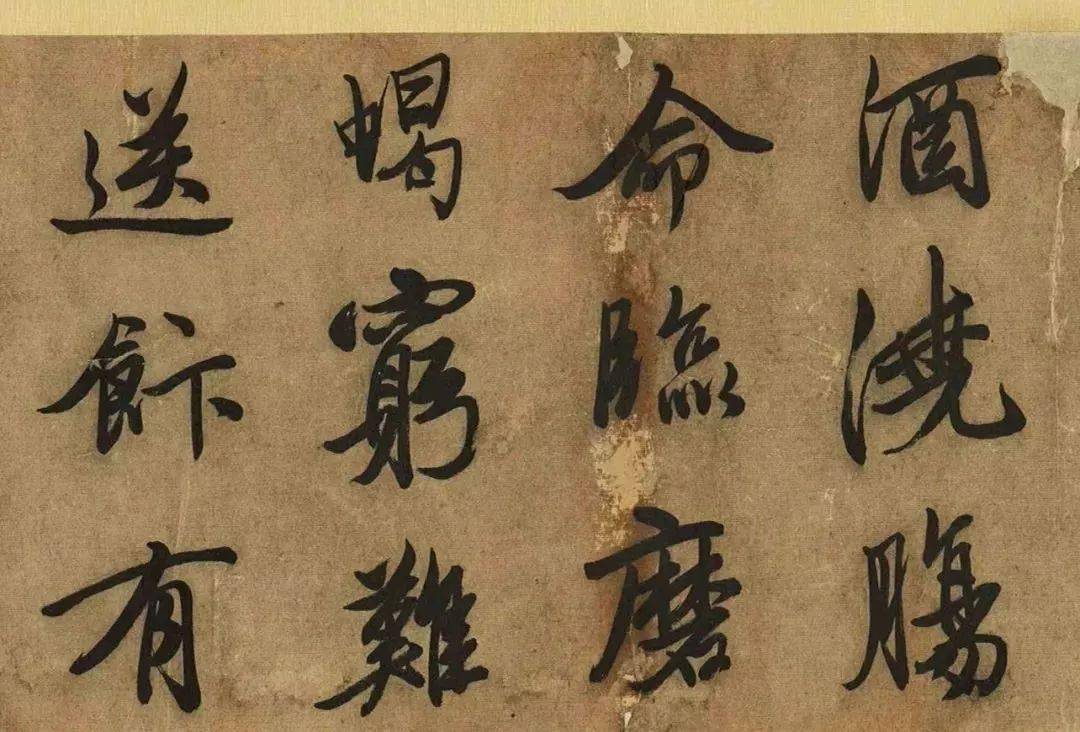 酒澆腸
命臨磨
蝎窮難
送餅有